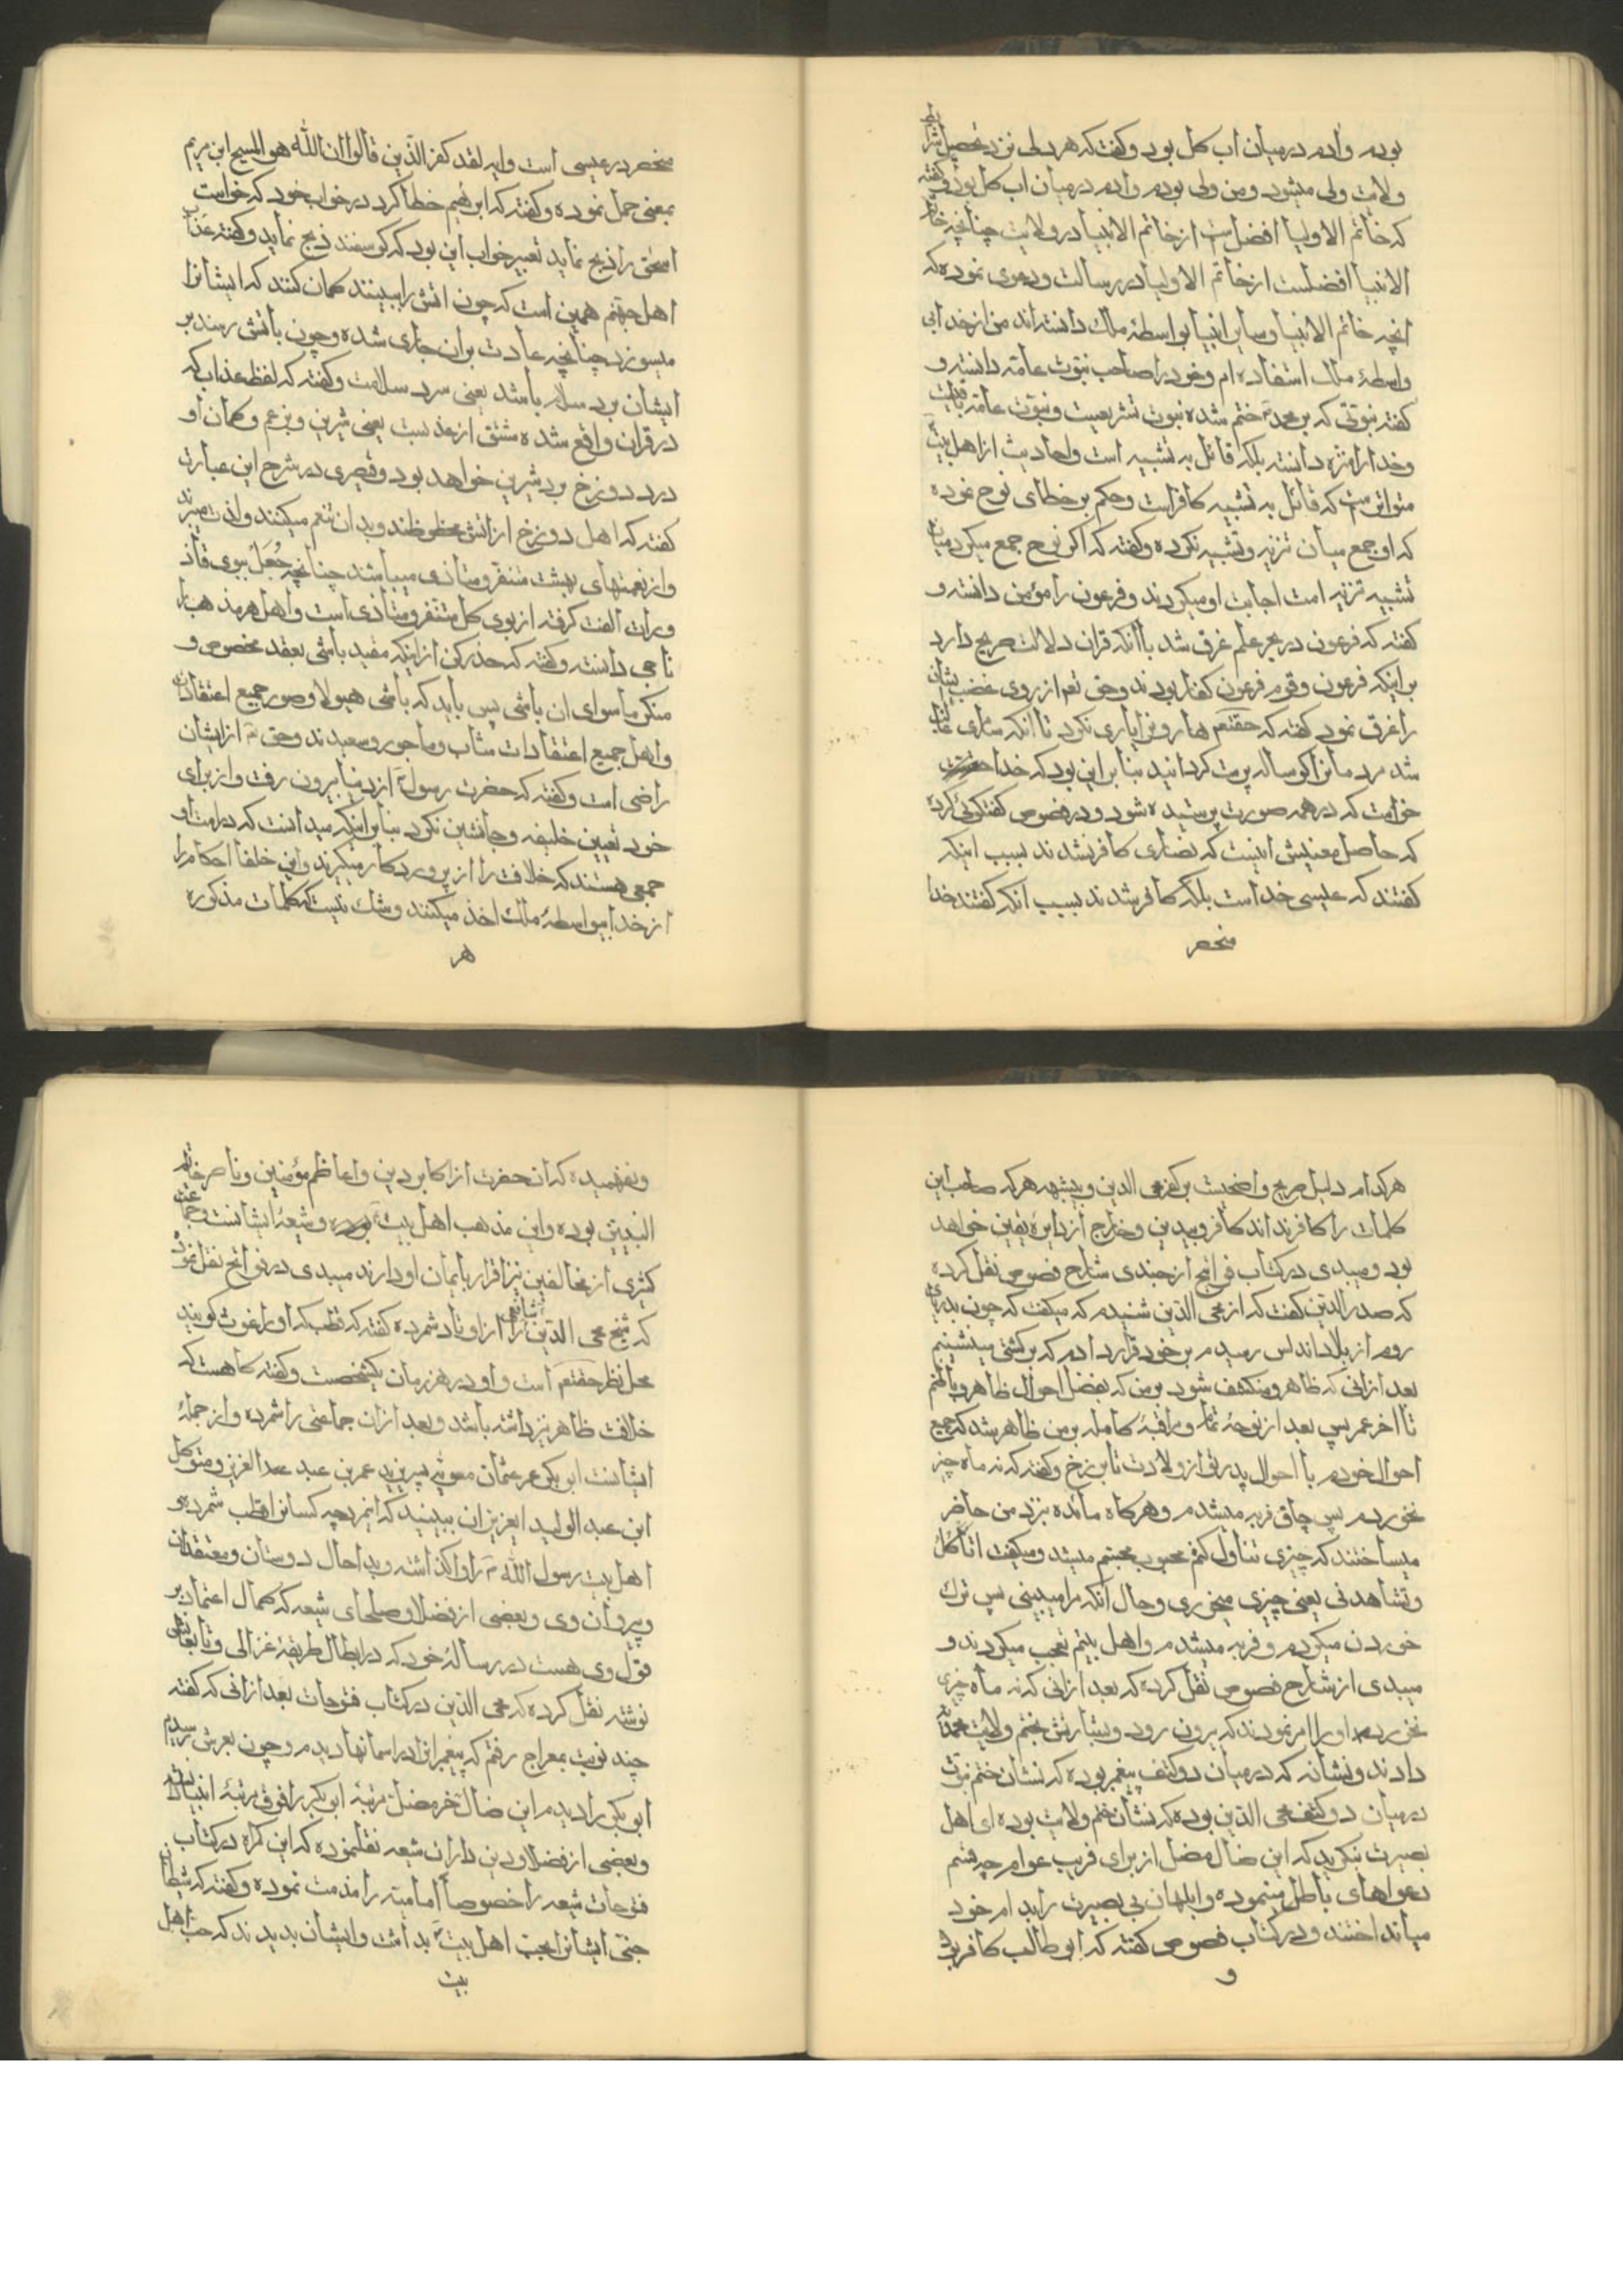 بودم وادم درمیان اب کل بود وکفت که هر ولی نزد تحصیل شرایط
ولایت ولی میشود ومن ولی بودم وادم درمیان اب کل بود وکفته
که خاتم الاولیا افضل است از خاتم الانبیا در ولایت چنانچه خاتم
الانبیا افضلست از خاتم الاولیا در رسالت ودعوی نموده که
انچه خاتم الانبیا وسایر انبیا بواسطهٔ ملک دانسته اند من از خدا بی
واسطهٔ ملک استفاده ام وخود را صاحب نبوت عامه دانسته و
کفته نبوتی که بر محمد ختم شده نبوت تشریعیست ونبوت عامه باقیست
وخدا را منزه دانسته بلکه قائل به تشبیه است واحادیث از اهل بیت
متواتر است که قائل به تشبیه کافر است وحکم بر خطای نوح نموده
که او جمع میان تنزیه وتشبیه نکرده وکفته که اکر نوح جمع میکرد میان
تشبیه تنزیه امت اجابت او میکردند وفرعون را مؤمن دانسته و
کفته که فرعون در بحر علم غرق شد باانکه قران دلالت صریح دارد
بر اینکه فرعون وقوم فرعون کفار بودند وحق تعم از روی غضب ایشان
را غرق نمود کفته که حقتعم هارونرا یاری نکرد تا انکه سامری غالب
شد مردمانرا کوساله پرست کردانید بنا بر این بود که خدا
خواست که در همه صورت پرستیده شود ودر فصوص کفتکوئی کرده
که حاصل معنیش اینست که نصاری کافر نشدند بسبب اینکه
کفتند که عیسی خداست بلکه کافر شدند بسبب انکه کفتند خدا
منحصر
منحصر در عیسی است وایه لقد کفر الذین قالوا ان الله هو المسیح ابن مریم
بمعنی حمل نموده وکفته که ابرهیم خطا کرد در خواب خود که خواست
اسحق را ذبح نماید تعبیر خواب این بود که کوسفند ذبح نماید وکفته عذاب
اهل جهنم همین است که چون اتش را ببینند کمان کنند که ایشانرا
میسوزد چنانچه عادت بران جاری شده وچون باتش رسند بر
ایشان برد سلام باشد یعنی سرد سلامت وکفته که لفظ عذاب که
در قران واقع شده مشتق از عذبست یعنی شیرین وبزعم وکمان او
درد دوزخ برد شیرین خواهد بود وقیصری در شرح این عبارت
کفته که اهل دوزخ از اتش محظوظند وبدان تنعم میکنند ولذت میبرند
واز نعمتهای بهشت متنفر ومتاذی میباشند چنانچه جُعَل ببوی قاذ
ورات الفت کرفته از بوی کل متنفر ومتاذی است واهل هر مذهب را
ناجی دانسته وکفته که حذر کن از اینکه مقید باشی بعقد مخصوص و
منکر ماسوای ان باشی پس باید که باشی هیولا وصور جمیع اعتقادات
واهل جمیع اعتقادات مثاب وماجور وسعیدند وحق تم از ایشان
راضی است وکفته که حضرت رسول از دنیا بیرون رفت واز برای
خود تعیین خلیفه وجانشین نکرد بنا بر اینکه میدانست که در امت او
جمعی هستند که خلافت را از پروردکار میکیرند واین خلفا احکام را
از خدا بیواسطهٔ ملک اخذ میکنند وشک نیست که کلمات مذکوره
هر
هر کدام دلیل صریح واضحیست بر کفر محی الدین وبیشبهه هر که صاحب این
کلمات را کافر نداند کافر وبیدین وخارج از دایرهٔ یقین خواهد
بود ومیبدی در کتاب فواتح از جندی شارح فصوص نقل کرده
که صدر الدین کفت که از محی الدین شنیدم که میکفت که چون بدریای
روم از بلاد اندلس رسیدم بر خود قرار دادم که بر کشتی ننشینم
بعد ازانی که ظاهر ومنکشف شود بر من که تفضل احوال ظاهر وباطنم
تا اخر عمر پس بعد از توجهٔ تمام ومراقبهٔ کامله بر من ظاهر شد که جمیع
احوال خودم با احوال پدر تو از ولادت تا برزخ وکفته که نه ماه چیز
نخوردم پس چاق فربه میشدم وهر کاه مائده نزد من حاضر
میساختند که چیزی تناول کنم محبوب مجسم میشد ومیکفت اتاکل
وتشاهدنی یعنی چیزی میخوری وحال انکه مرا میبینی پس ترک
خوردن میکردم وفربه میشدم واهل بیتم تعجب میکردند و
میبدی از شارح فصوص نقل کرده که بعد ازانی که نه ماه چیزی
نخورده او را امر نمودند که بیرون رود وبشارتش بختم ولایت محمدیه
دادند ونشانه که درمیان دو کتف پیغمبر بوده که نشان ختم نبوت
درمیان دو کتف محی الدین بوده که نشان ختم ولایت بوده ای اهل
بصیرت بنکرید که این ضال مضل از برای فریب عوام چه قسم
دعواهای باطل مینموده وابلهان بی بصیرت را بدام خود
میانداختند ودر کتاب فصوص کفته که ابو طالب کافر بود
و
ونفهمیده که ان حضرت از اکابر دین واعاظم مؤمنین وناصر خاتم
النبیین بوده واین مذهب اهل بیت بوده وشیعهٔ ایشانست وجماعت
کثیری از مخالفین نیز اقرار بایمان او دارند میبدی در فواتح نقل نموده
که شیخ محی الدین شافعی را از اوتاد شمرده کفته که قطب که او را غوث کویند
محل نظر حقتعم است واو در هر زمان یکشخصست وکفته کاهست که
خلافت ظاهر نیز داشته باشد وبعد ازان جماعتی را شمرده واز جملهٔ
ایشانست ابی بکر عمر عثمان معویه یزید عمر بن عبد العزیز ومتوکل
ابن عبد الولید ایعزیزان ببینید که انمرد چه کسانرا قطب شمرده و
اهل بیت رسول الله را واکذاشته وبدا حال دوستان ومعتقدان
وپیروان وی وبعضی از فضلا وصلحای شیعه که کمال اعتماد بر
قول وی هست در رسالهٔ خود که در ابطال طریقهٔ غزالی وتابعانش
نوشته نقل کرده که محی الدین در کتاب فتوحات بعد ازانی که کفته
چند نوبت بمعراج رفتم که پیغمبرانرا در اسمانها دیدم وچون بعرش رسیدم
ابی بکر را دیدم این ضال مضل مرتبهٔ ابو بکر را فوق مرتبهٔ انبیا
وبعضی از فضلا ودین داران شیعه نقلنموده که این کمراه در کتاب
فتوحات شیعه را خصوصاً امامیه را مذمت نموده وکفته که شیطان
جنی ایشانرا بمحبت اهل بیت بداشت وایشان بدیدند که حب اهل
بیت